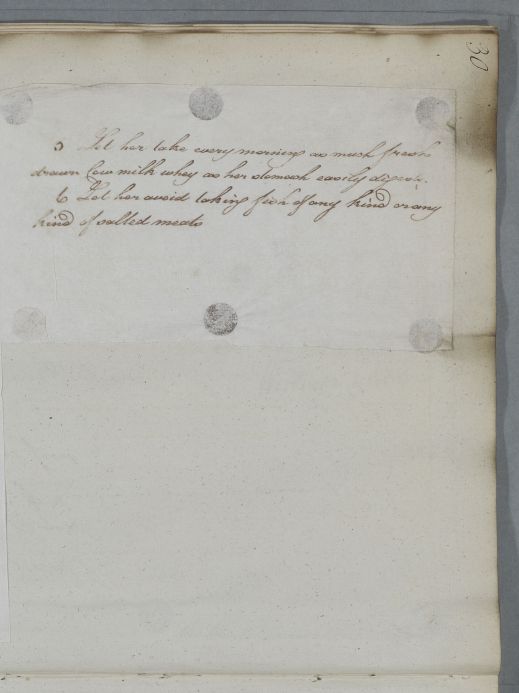 30
5 Let her take every morning as much fresh
drawn Cow milk whey as her stomach easily digests.
6 Let her avoid taking fish of any kind or any
kind of salted meats